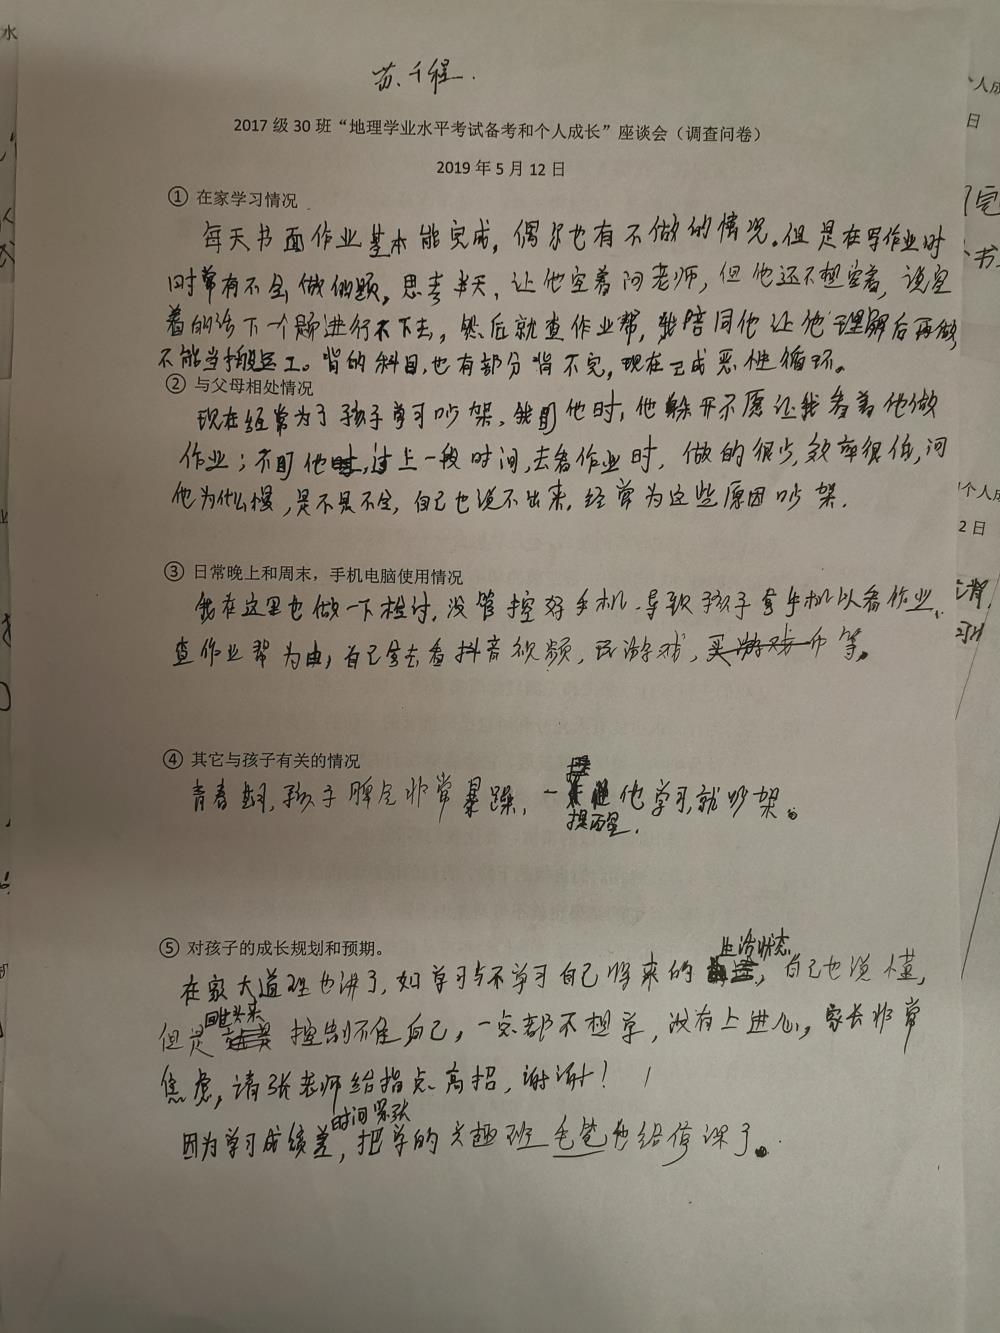 苏千程.
2017 级 30 班“地理学业水平考试备考和个人成长”座谈会（调查问卷）
2019 年 5 月 12 日
① 在家学习情况
每天书面作业基本能完成，偶尔也有不做的情况。但是在写作业时
时常有不会做的题，思考半天，让他空着问老师，但他还不想空着，说空
着的话下一个题进行不下去，然后就查作业帮，我陪同他让他理解后再做，
不能当搬运工。背的科目，也有部分背不完，现在已成恶性循环。
② 与父母相处情况
现在经常为了孩子学习吵架，我盯他时，他躲开不愿让我看着他做
作业；不盯他，过上一段时间，去看作业时，做的很少，效率很低，问
他为什么慢，是不是不会，自己也说不出来，经常为这些原因吵架.
③ 日常晚上和周末，手机电脑使用情况
我在这里也做一下检讨，没管控好手机，导致孩子拿手机以看作业、
查作业帮为由，自己拿去看抖音视频，玩游戏，买游戏币等。
④ 其它与孩子有关的情况
青春期，孩子脾气非常暴躁，一提醒他学习，就吵架。
⑤ 对孩子的成长规划和预期。
在家大道理也讲了，如学习与不学习自己将来的生活状态，自己也说懂，
但是回过头来控制不住自己，一点都不想学，没有上进心，家长非常
焦虑，请张老师给指点高招，谢谢！
因为学习成绩差，时间紧张把学的兴趣班毛笔也给停课了。